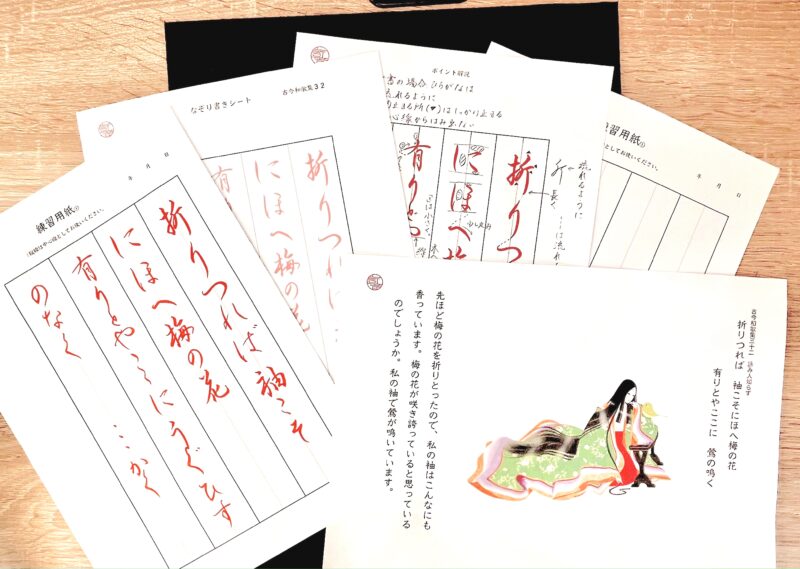 練習用紙①
(縦線は中心線としてお使いください。
年 月 日
折りつれば袖こそ
にほへ梅の花
有りとやここにうぐひす
のなく
…かく
なぞり書きシート
古今和歌集32
折りつれ
にほへ梅の花
有
ポイント解説
書の場合ひらがなは
流れるように
止まる所(♥)はしっかり止まる
心線からはみ出ない
折りつ
にほへ
有りと
流れるように
長く
練習用紙①
としてお使いください。
年 月 日
古今和歌集三十二 読み人知らず
折りつれば 袖こそにほへ梅の花
有りとやここに 鶯の鳴く
先ほど梅の花を折りとったので、私の袖はこんなにも
香っています。梅の花が咲き誇っていると思っている
のでしょうか。私の袖で鶯が鳴いています。